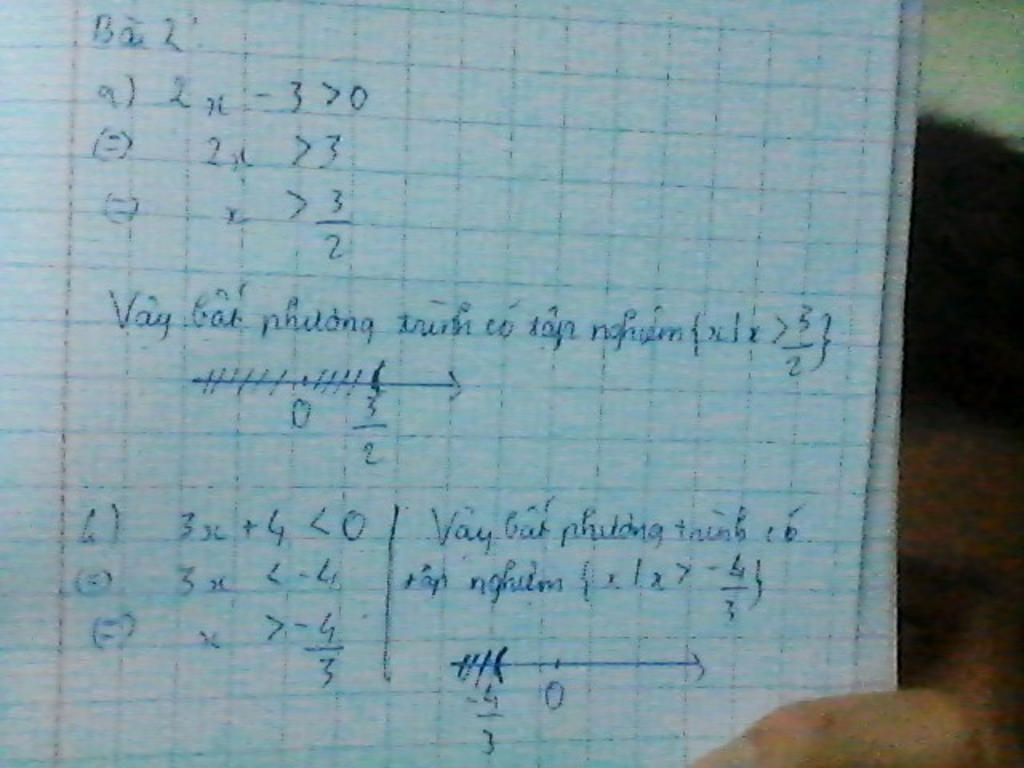 Bài 2:
a) 2x - 3 > 0
(=) 2x > 3
(=) x > 3/2
Vậy bất phương trình có tập nghiệm {x | x > 3/2}
0 3/2
b) 3x + 4 < 0
(=) 3x < -4
(=) x > -4/3
Vậy bất phương trình có
tập nghiệm {x | x > -4/3}
-4/3 0